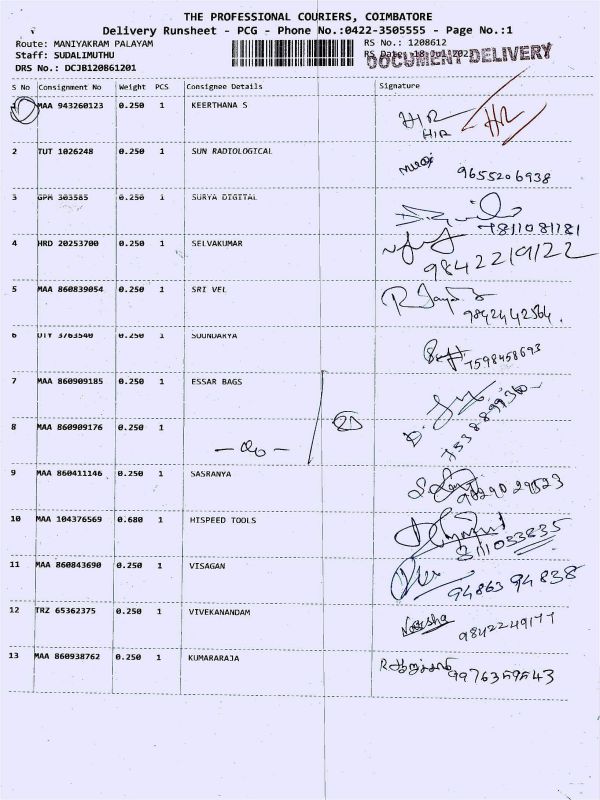 THE PROFESSIONAL COURIERS, COIMBATORE
Delivery Runsheet - PCG - Phone No.:0422-3505555 - Page No.:1
Route: MANIYAKRAM PALAYAM
RS No.: 1208612
Staff: SUDALIMUTHU
RS Date:
DOCUMENT DELIVERY
DRS No.: DCJB120861201
S No Consignment No Weight PCS Consignee Details Signature
1 MAA 943260123 0.250 1 KEERTHANA S HIR HR
HIR
2 TUT 1026248 0.250 1 SUN RADIOLOGICAL
9655206938
3 GPM 303585 0.250 1 SURYA DIGITAL
7811081181
4 HRD 20253700 0.250 1 SELVAKUMAR
9842219122
5 MAA 860839054 0.250 1 SRI VEL
9842442564.
6 DTY 3763540 0.250 1 SOUNDARYA
7598458693
7 MAA 860909185 0.250 1 ESSAR BAGS
8 MAA 860909176 0.250 1 - do -
9 MAA 860411146 0.250 1 SASRANYA
10 MAA 104376569 0.680 1 HISPEED TOOLS
11 MAA 860843690 0.250 1 VISAGAN
94863 94838
12 TRZ 65362375 0.250 1 VIVEKANANDAM
9842249177
13 MAA 860938762 0.250 1 KUMARARAJA
9976359543